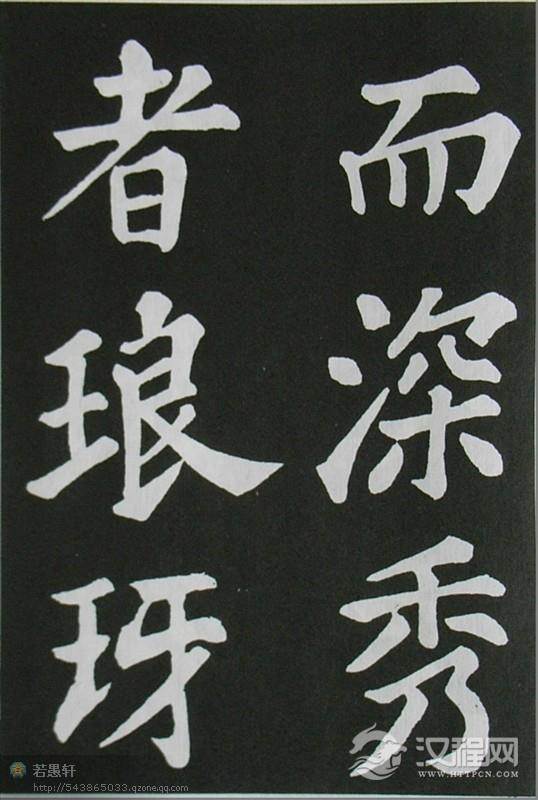 而深秀
者琅玡
若愚轩
http://543865033.qzone.qq.com
汉程网
WWW.HTTPCN.COM